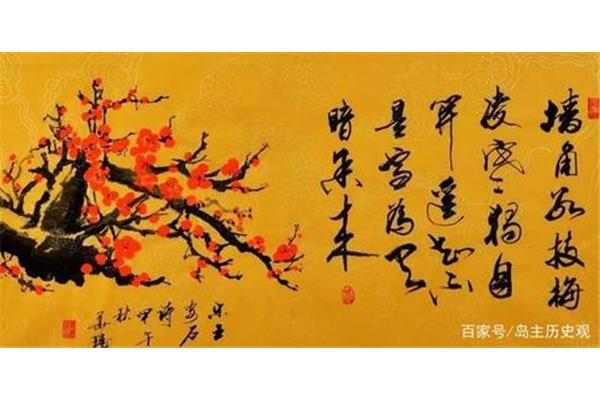 墙角数枝梅
凌寒独自
开遥知不
是雪为有
暗香来
宋王
安石
诗
甲午
秋
百家号/岛主历史观